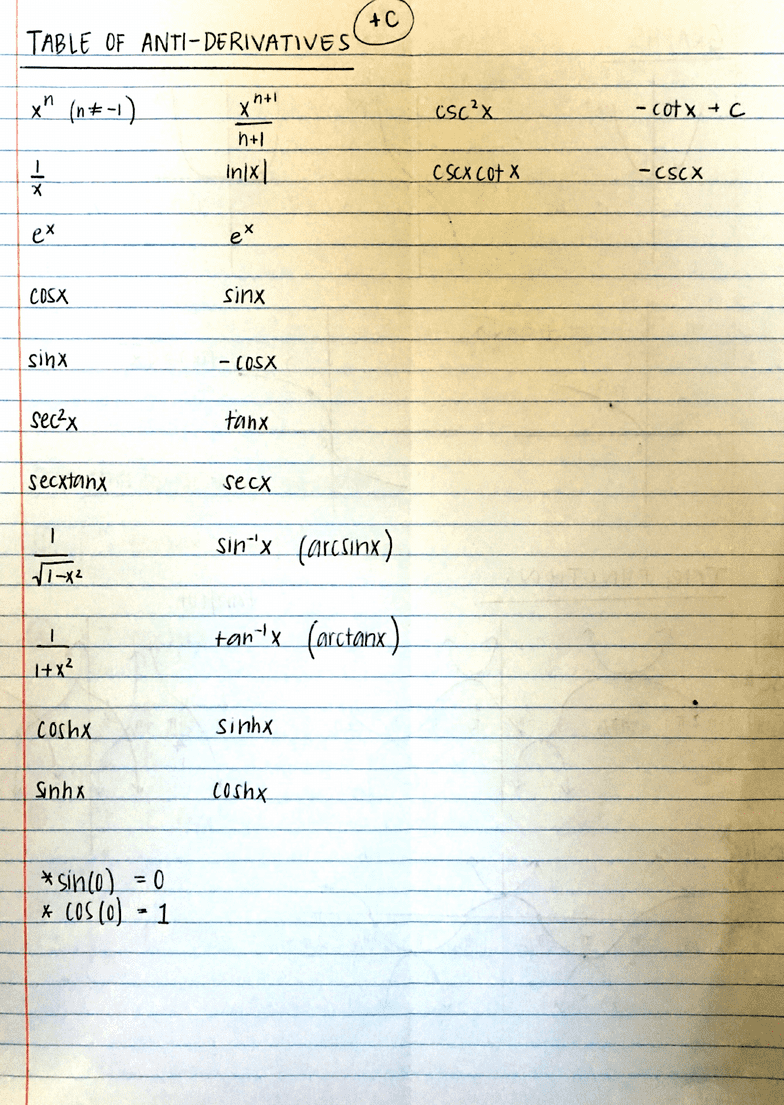 +C
TABLE OF ANTI-DERIVATIVES
xⁿ (n≠-1) xⁿ⁺¹/n+1 csc²x -cotx + C
1/x ln|x| cscx cotx -cscx
eˣ eˣ
cosx sinx
sinx -cosx
sec²x tanx
secxtanx secx
1/√1-x² sin⁻¹x (arcsinx)
1/1+x² tan⁻¹x (arctanx)
coshx sinhx
sinhx coshx
*sin(0) = 0
* cos(0) = 1